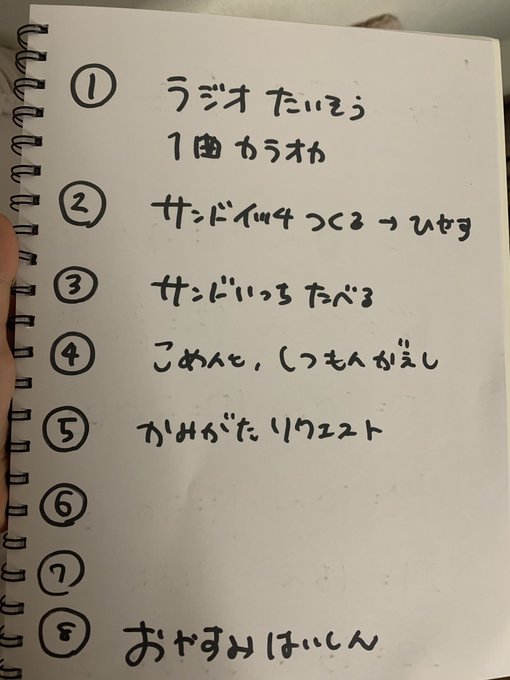 ① ラジオ たいそう
1曲カラオケ
② サンドイッチ つくる → ひやす
③ サンドいっち たべる
④ こめんと、しつもんがえし
⑤ かみがた リクエスト
⑥
⑦
⑧ おやすみはいしん